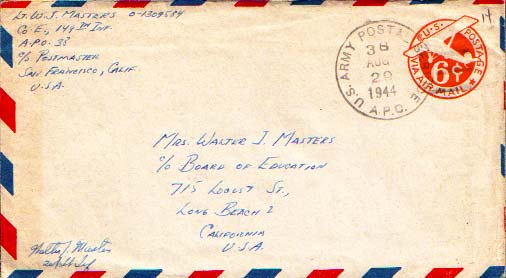 Lt. W. J. Masters O-1309589
Co E., 149th Inf.
A.P.O. 38
c/o Postmaster
San Francisco, Calif.
U.S.A.
U.S. ARMY POSTAL
38
AUG
29
1944
A.P.O.
U.S. POSTAGE
6¢
VIA AIR MAIL
14
Mrs. Walter J. Masters
c/o Board of Education
715 Locust St.,
Long Beach 2
California
U.S.A.
Walter J. Masters